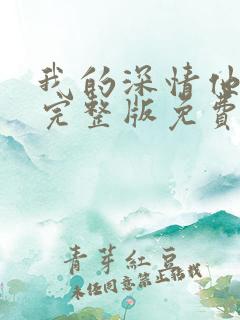 我的深情他
完整版免费
青芽紅豆
未经同意禁止搭我